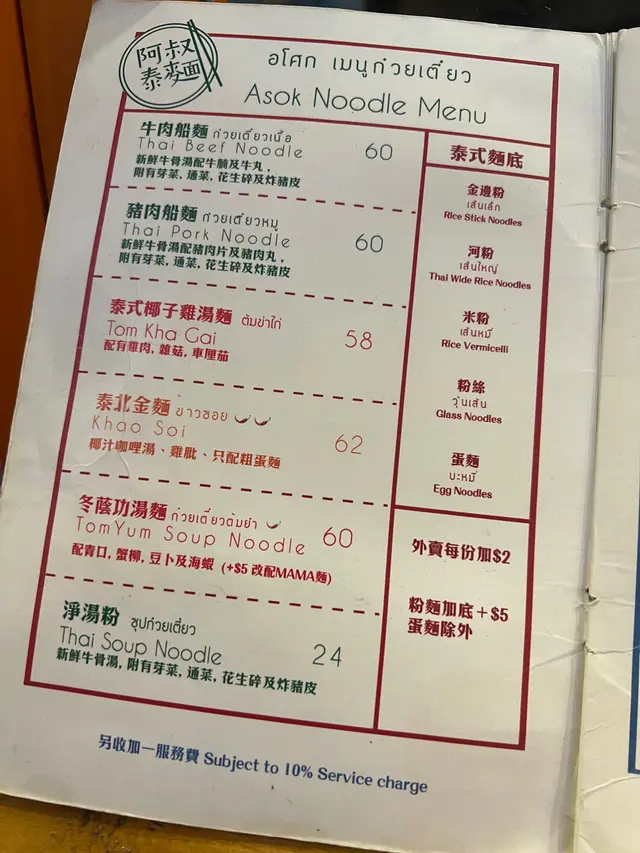 阿叔
泰麵
อโศก เมนูก๋วยเตี๋ยว
Asok Noodle Menu
牛肉船麵 ก๋วยเตี๋ยวเนื้อ
Thai Beef Noodle 60
新鮮牛骨湯配牛腩及牛丸，
附有芽菜, 通菜, 花生碎及炸豬皮
豬肉船麵 ก๋วยเตี๋ยวหมู
Thai Pork Noodle 60
新鮮牛骨湯配豬肉片及豬肉丸，
附有芽菜, 通菜, 花生碎及炸豬皮
泰式椰子雞湯麵 ต้มข่าไก่
Tom Kha Gai 58
配有雞肉, 雜菇, 車厘茄
泰北金麵 ข้าวซอย
Khao Soi 62
椰汁咖喱湯、雞髀、只配粗蛋麵
冬蔭功湯麵 ก๋วยเตี๋ยวต้มยำ
TomYum Soup Noodle 60
配青口, 蟹柳, 豆卜及海蝦 (+$5 改配MAMA麵)
淨湯粉 ซุปก๋วยเตี๋ยว
Thai Soup Noodle 24
新鮮牛骨湯, 附有芽菜, 通菜, 花生碎及炸豬皮
泰式麵底
金邊粉
เส้นเล็ก
Rice Stick Noodles
河粉
เส้นใหญ่
Thai Wide Rice Noodles
米粉
เส้นหมี่
Rice Vermicelli
粉絲
วุ้นเส้น
Glass Noodles
蛋麵
บะหมี่
Egg Noodles
外賣每份加$2
粉麵加底＋$5
蛋麵除外
另收加一服務費 Subject to 10% Service charge